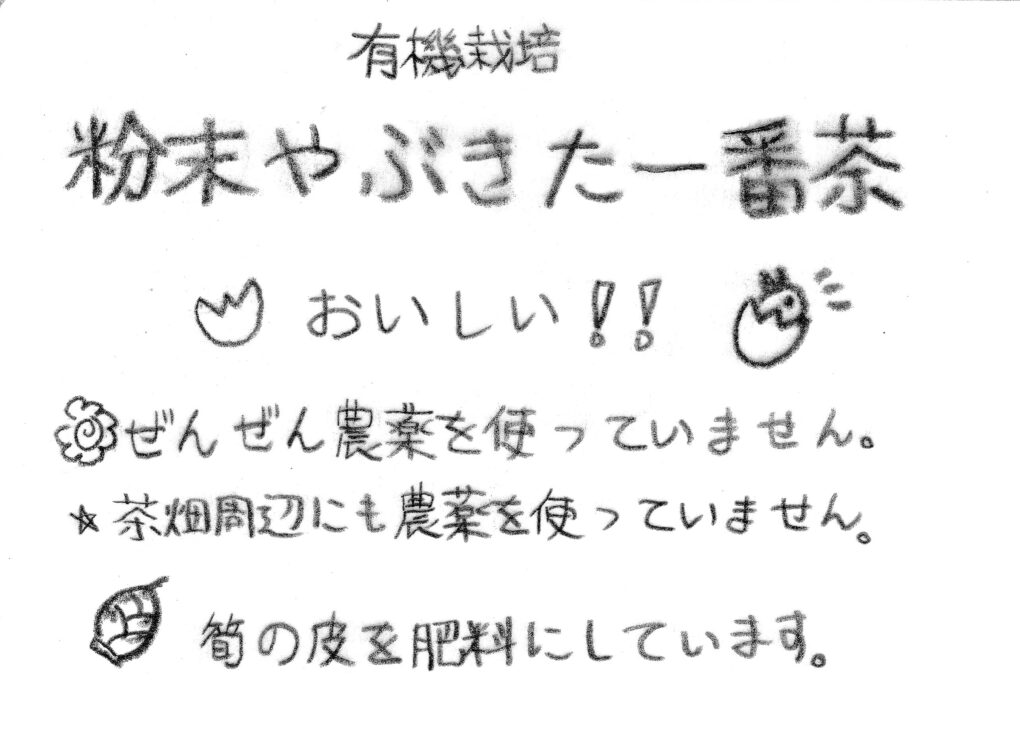 有機栽培
粉末やぶきた一番茶
おいしい!!
ぜんぜん農薬を使っていません。
☆茶畑周辺にも農薬を使っていません。
筍の皮を肥料にしています。